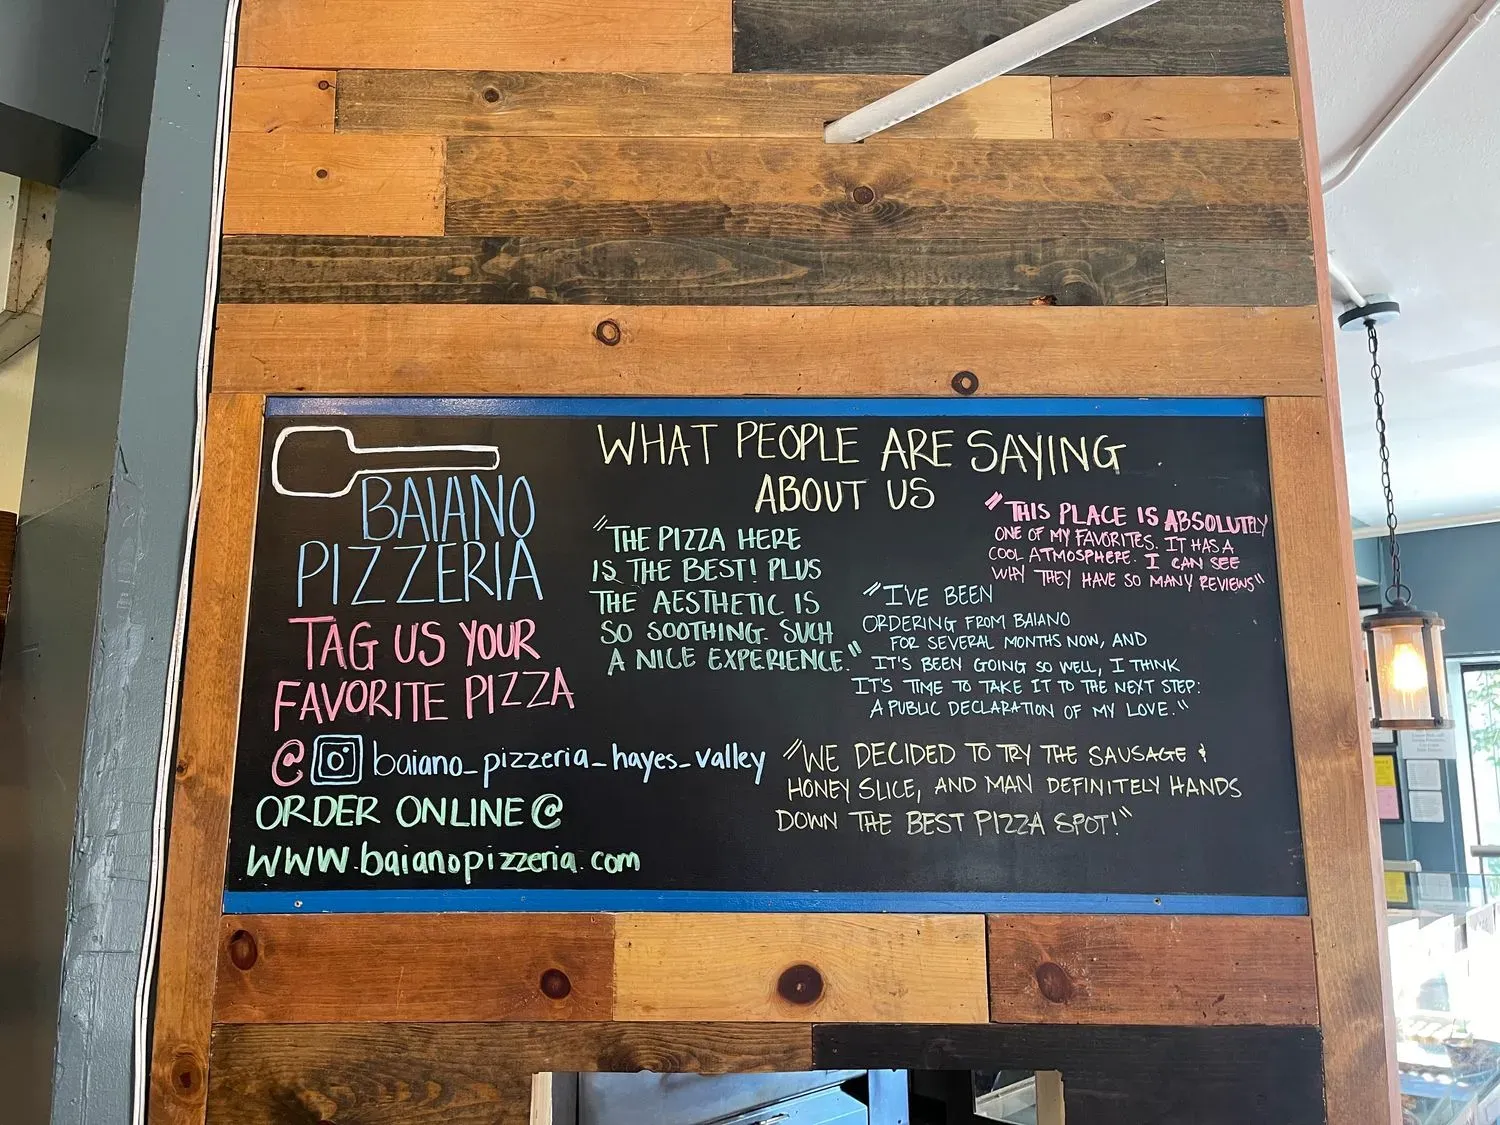 BAIANO
PIZZERIA
TAG US YOUR
FAVORITE PIZZA
@ baiano_pizzeria_hayes_valley
ORDER ONLINE @
WWW.baianopizzeria.com
WHAT PEOPLE ARE SAYING
ABOUT US
"THE PIZZA HERE
IS THE BEST! PLUS
THE AESTHETIC IS
SO SOOTHING. SUCH
A NICE EXPERIENCE."
"THIS PLACE IS ABSOLUTELY
ONE OF MY FAVORITES. IT HAS A
COOL ATMOSPHERE. I CAN SEE
WHY THEY HAVE SO MANY REVIEWS"
"I'VE BEEN
ORDERING FROM BAIANO
FOR SEVERAL MONTHS NOW, AND
IT'S BEEN GOING SO WELL, I THINK
IT'S TIME TO TAKE IT TO THE NEXT STEP:
A PUBLIC DECLARATION OF MY LOVE."
"WE DECIDED TO TRY THE SAUSAGE &
HONEY SLICE, AND MAN DEFINITELY HANDS
DOWN THE BEST PIZZA SPOT!"